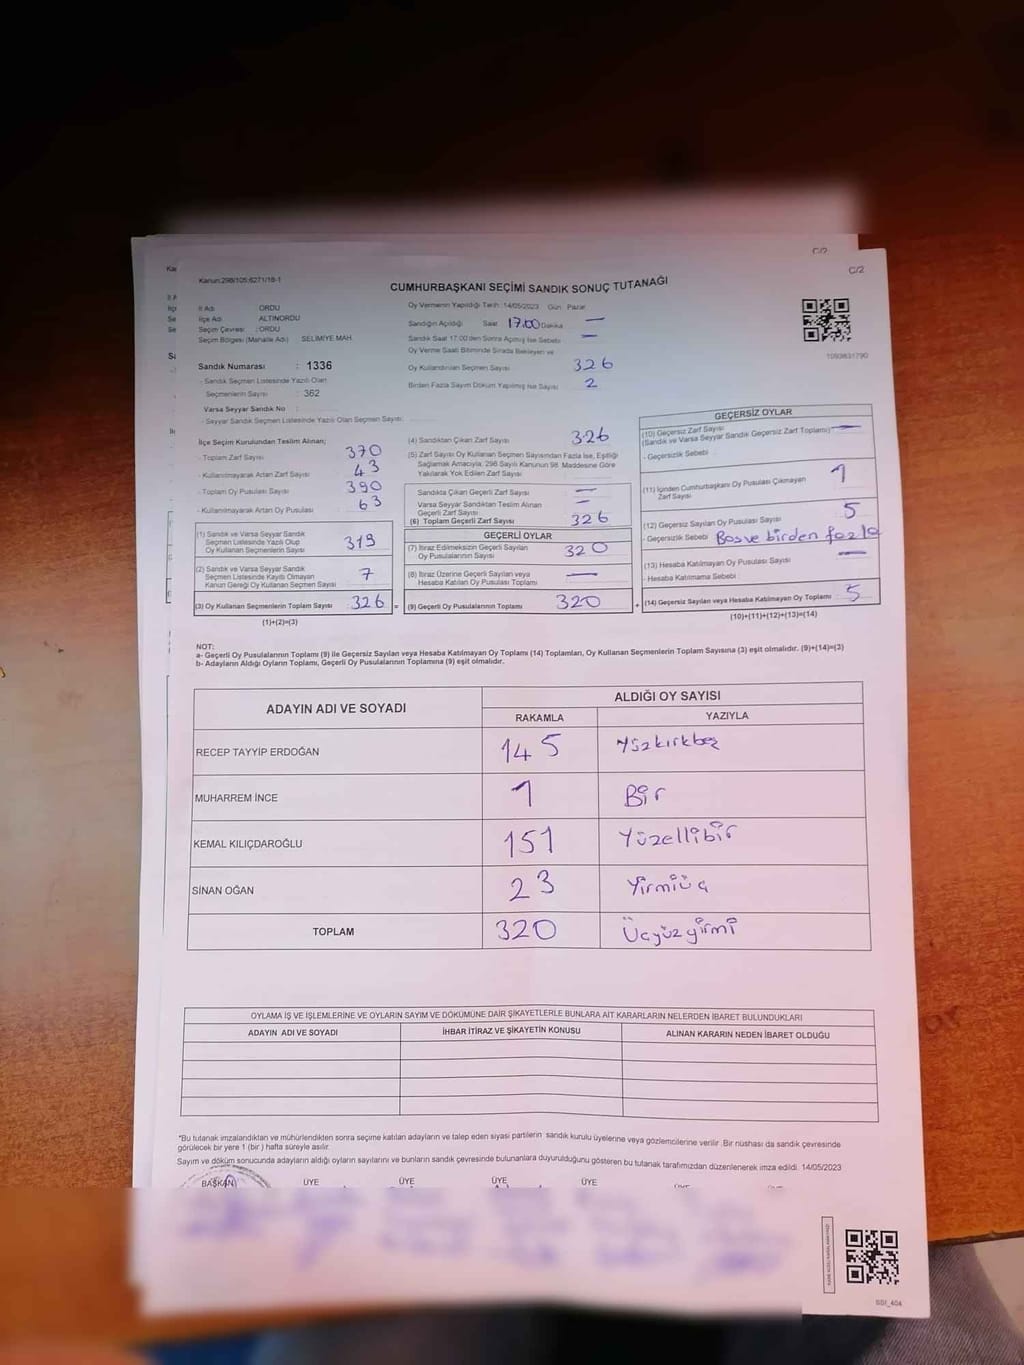 C/2
C/2
Kanun:298/105;6271/18-1
CUMHURBAŞKANI SEÇİMİ SANDIK SONUÇ TUTANAĞI
İl Adı ORDU
İlçe Adı ALTINORDU
Seçim Çevresi : ORDU
Seçim Bölgesi (Mahalle Adı) SELIMIYE MAH.
Sandık Numarası : 1336
- Sandık Seçmen Listesinde Yazılı Olan
Seçmenlerin Sayısı : 362
Varsa Seyyar Sandık No :
- Seyyar Sandık Seçmen Listesinde Yazılı Olan Seçmen Sayısı:
Oy Vermenin Yapıldığı Tarih: 14/05/2023 Gün: Pazar
Sandığın Açıldığı Saat 17:00 Dakika —
Sandık Saat 17:00'den Sonra Açılmış İse Sebebi —
Oy Verme Saati Bitiminde Sırada Bekleyen ve
Oy Kullandırılan Seçmen Sayısı 326
Birden Fazla Sayım Döküm Yapılmış İse Sayısı 2
1093831790
İlçe Seçim Kurulundan Teslim Alınan;
- Toplam Zarf Sayısı 370
- Kullanılmayarak Artan Zarf Sayısı 43
- Toplam Oy Pusulası Sayısı 390
- Kullanılmayarak Artan Oy Pusulası 63
(1) Sandık ve Varsa Seyyar Sandık
Seçmen Listesinde Yazılı Olup
Oy Kullanan Seçmenlerin Sayısı 319
(2) Sandık ve Varsa Seyyar Sandık
Seçmen Listesinde Kayıtlı Olmayan
Kanun Gereği Oy Kullanan Seçmen Sayısı 7
(3) Oy Kullanan Seçmenlerin Toplam Sayısı 326 =
(1)+(2)=(3)
(4) Sandıktan Çıkan Zarf Sayısı 326
(5) Zarf Sayısı Oy Kullanan Seçmen Sayısından Fazla İse, Eşitliği
Sağlamak Amacıyla, 298 Sayılı Kanunun 98. Maddesine Göre
Yakılarak Yok Edilen Zarf Sayısı
Sandıkta Çıkan Geçerli Zarf Sayısı —
Varsa Seyyar Sandıktan Teslim Alınan
Geçerli Zarf Sayısı —
(6) Toplam Geçerli Zarf Sayısı 326
GEÇERLİ OYLAR
(7) İtiraz Edilmeksizin Geçerli Sayılan
Oy Pusulalarının Sayısı 320
(8) İtiraz Üzerine Geçerli Sayılan veya
Hesaba Katılan Oy Pusulası Toplamı —
(9) Geçerli Oy Pusulalarının Toplamı 320 +
GEÇERSİZ OYLAR
(10) Geçersiz Zarf Sayısı
(Sandık ve Varsa Seyyar Sandık Geçersiz Zarf Toplamı) —
- Geçersizlik Sebebi
(11) İçinden Cumhurbaşkanı Oy Pusulası Çıkmayan
Zarf Sayısı 1
(12) Geçersiz Sayılan Oy Pusulası Sayısı 5
- Geçersizlik Sebebi Bos ve birden fazla
(13) Hesaba Katılmayan Oy Pusulası Sayısı —
- Hesaba Katılmama Sebebi
(14) Geçersiz Sayılan veya Hesaba Katılmayan Oy Toplamı 5
(10)+(11)+(12)+(13)=(14)
NOT:
a- Geçerli Oy Pusulalarının Toplamı (9) ile Geçersiz Sayılan veya Hesaba Katılmayan Oy Toplamı (14) Toplamları, Oy Kullanan Seçmenlerin Toplam Sayısına (3) eşit olmalıdır. (9)+(14)=(3)
b- Adayların Aldığı Oyların Toplamı, Geçerli Oy Pusulalarının Toplamına (9) eşit olmalıdır.
ADAYIN ADI VE SOYADI
ALDIĞI OY SAYISI
RAKAMLA YAZIYLA
RECEP TAYYİP ERDOĞAN 145 Yüzkırkbeş
MUHARREM İNCE 1 Bir
KEMAL KILIÇDAROĞLU 151 Yüzellibir
SİNAN OĞAN 23 Yirmiüç
TOPLAM 320 Üçyüzyirmi
OYLAMA İŞ VE İŞLEMLERİNE VE OYLARIN SAYIM VE DÖKÜMÜNE DAİR ŞİKAYETLERLE BUNLARA AİT KARARLARIN NELERDEN İBARET BULUNDUKLARI
ADAYIN ADI VE SOYADI İHBAR İTİRAZ VE ŞİKAYETİN KONUSU ALINAN KARARIN NEDEN İBARET OLDUĞU
*Bu tutanak imzalandıktan ve mühürlendikten sonra seçime katılan adayların ve talep eden siyasi partilerin sandık kurulu üyelerine veya gözlemcilerine verilir. Bir nüshası da sandık çevresinde
görülecek bir yere 1 (bir) hafta süreyle asılır.
Sayım ve döküm sonucunda adayların aldığı oyların sayılarını ve bunların sandık çevresinde bulunanlara duyurulduğunu gösteren bu tutanak tarafımızdan düzenlenerek imza edildi. 14/05/2023
BAŞKAN ÜYE ÜYE ÜYE ÜYE ÜYE
SSI_404